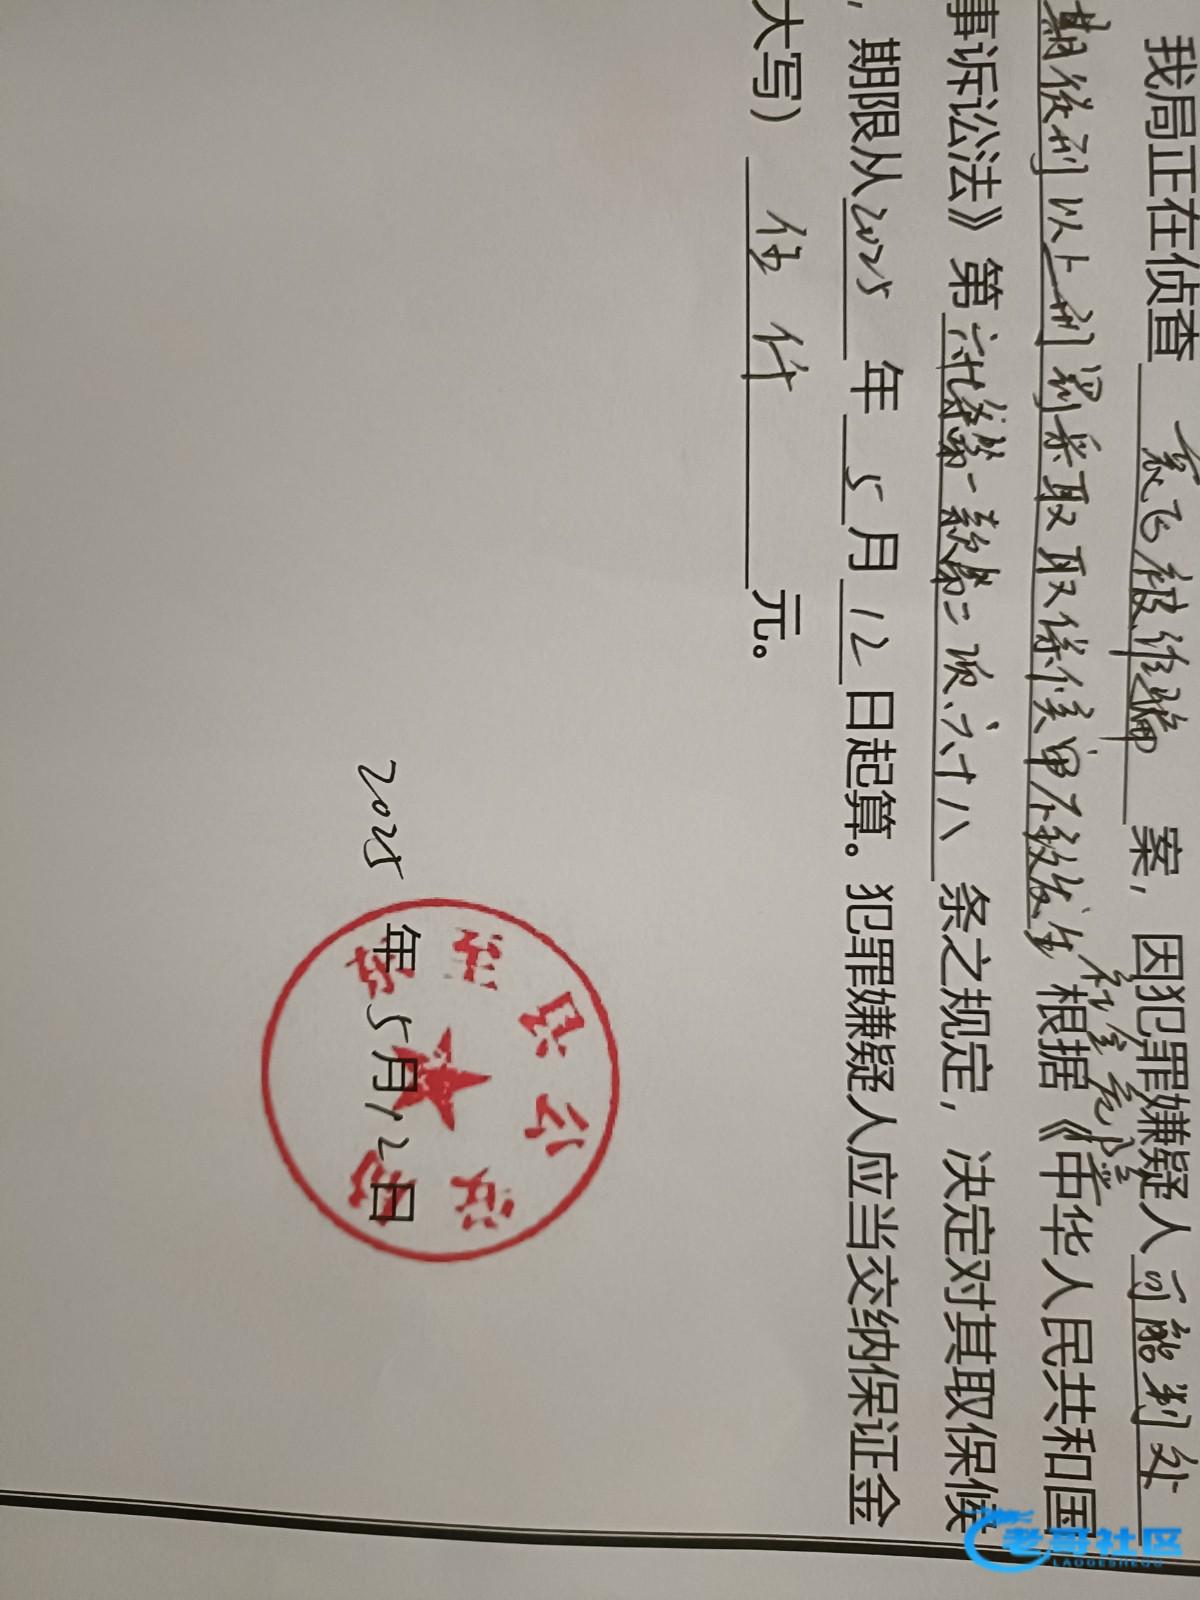 我局正在侦查 袁飞被诈骗 案，因犯罪嫌疑人 可能判处
期徒刑以上刑罚采取取保候审不致发生社会危险性 根据《中华人民共和国
事诉讼法》第 六十七条第一款第二项、六十八 条之规定，决定对其取保候
，期限从2025 年 5 月 12 日起算。犯罪嫌疑人应当交纳保证金
大写） 伍仟 元。
2025 年 5 月 12 日
县公安局
老哥社区
LAOGESHEQU